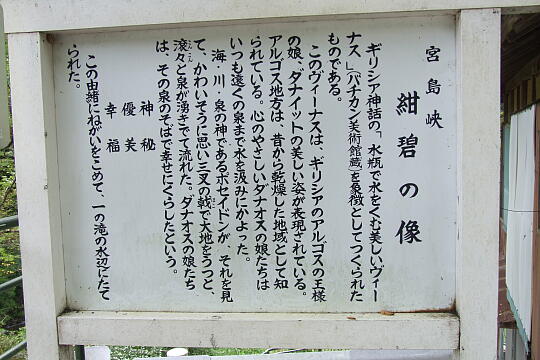 宮島峡
紺碧の像
ギリシア神話の、「水瓶で水をくむ美しいヴィー
ナス」(バチカン美術館蔵)を象徴としてつくられた
ものである。
このヴィーナスは、ギリシアのアルゴスの王様
の娘、ダナイットの美しい姿が表現されている。
アルゴス地方は、昔から乾燥した地域として知
られている。心のやさしいダナオスの娘たちは
いつも遠くの泉まで水を汲みにかよった。
海・川・泉の神であるポセイドンが、それを見
て、かわいそうに思い三叉の戟で大地をうつと
滾々と泉が湧きでて流れた。ダナオスの娘たち
は、その泉のそばで幸せにくらしたという。
神秘
優美
幸福
この由緒にねがいをこめて、一の滝の水辺にたて
られた。